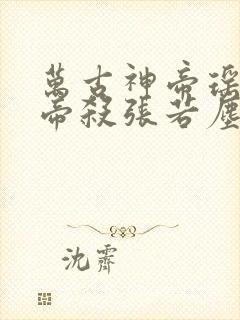 萬古神帝瑶
帝殺張若塵
沈霽